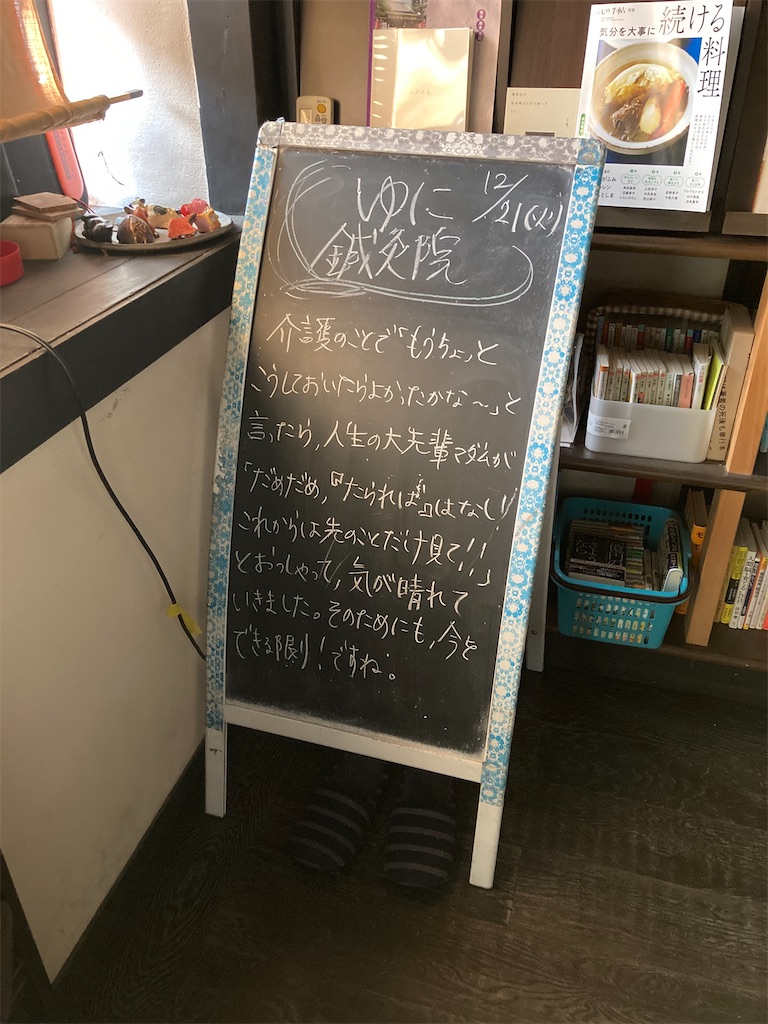 ゆに
12/21(火)
鍼灸院
介護のことで「もうちょっと
こうしておいたらよかったかな〜」と
言ったら、人生の大先輩マダムが
「だめだめ,『たられば』はなし!!
これからは先のことだけ見て!!」
とおっしゃって、気が晴れて
いきました。そのためにも、今を
できる限り!ですね。
気分を大事に
続ける
料理